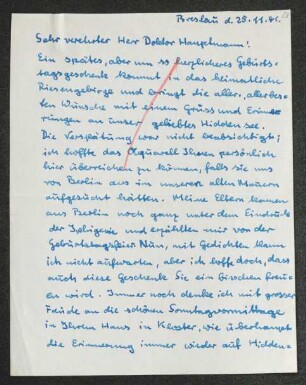 Breslau d. 28.11.41.
Sehr verehrter Herr Doktor Hauptmann!
Ein spätes, aber um so herzlicheres Geburts-
tagsgeschenk kommt in das heimatliche
Riesengebirge und bringt die aller, allerbes-
ten Wünsche mit einem Gruss und Erinne-
rungen an unser geliebtes Hiddensee.
Die Verspätung war nicht beabsichtigt;
ich hoffte das Aquarell Ihnen persönlich
hier überreichen zu können, falls sie uns
von Berlin aus in unseren alten Mauern
aufgesucht hätten. Meine Eltern kamen
aus Berlin noch ganz unter dem Eindruck
der Iphigenie und erzählten mir von der
Geburtstagsfeier. Nun, mit Gedichten kann
ich nicht aufwarten, aber ich hoffe doch, dass
auch diese Geschenke Sie ein bisschen freu-
en wird. Immer noch denke ich mit grosser
Freude an die schönen Sonntagvormittage
in Ihrem Haus in Kloster, wie überhaupt
die Erinnerung immer wieder auf Hidden-